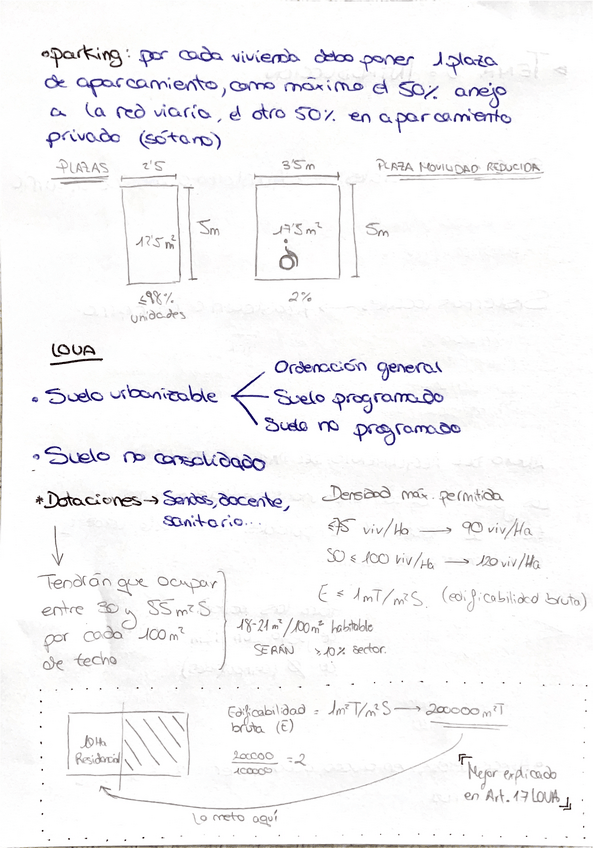 *parking: por cada vivienda debo poner 1 plaza
de aparcamiento, como máximo el 50% anejo
a la red viaria, el otro 50% en aparcamiento
privado (sótano)
PLAZAS 2'5 3'5m PLAZA MOVILIDAD REDUCIDA
12'5 m² 5m 17'5 m² 5m
≤98% 2%
unidades
LOUA
• Suelo urbanizable
Ordenación general
Suelo programado
Suelo no programado
• Suelo no consolidado
*Dotaciones → Sendos, docente,
sanitario...
Densidad máx. permitida
≤75 viv/Ha → 90 viv/Ha
50 ≤ 100 viv/Ha → 120 viv/Ha
E ≤ 1mT/m²S. (edificabilidad bruta)
Tendrán que ocupar
entre 30 y 55 m²S
por cada 100m²
de techo
18-21 m²/100m² habitable
SERÁN >10% sector.
10Ha
Residencial
Edificabilidad = 1m²T/m²S → 200000 m²T
bruta (E)
200000/100000 = 2
Mejor explicado
en Art. 17 LOUA
Lo meto aquí